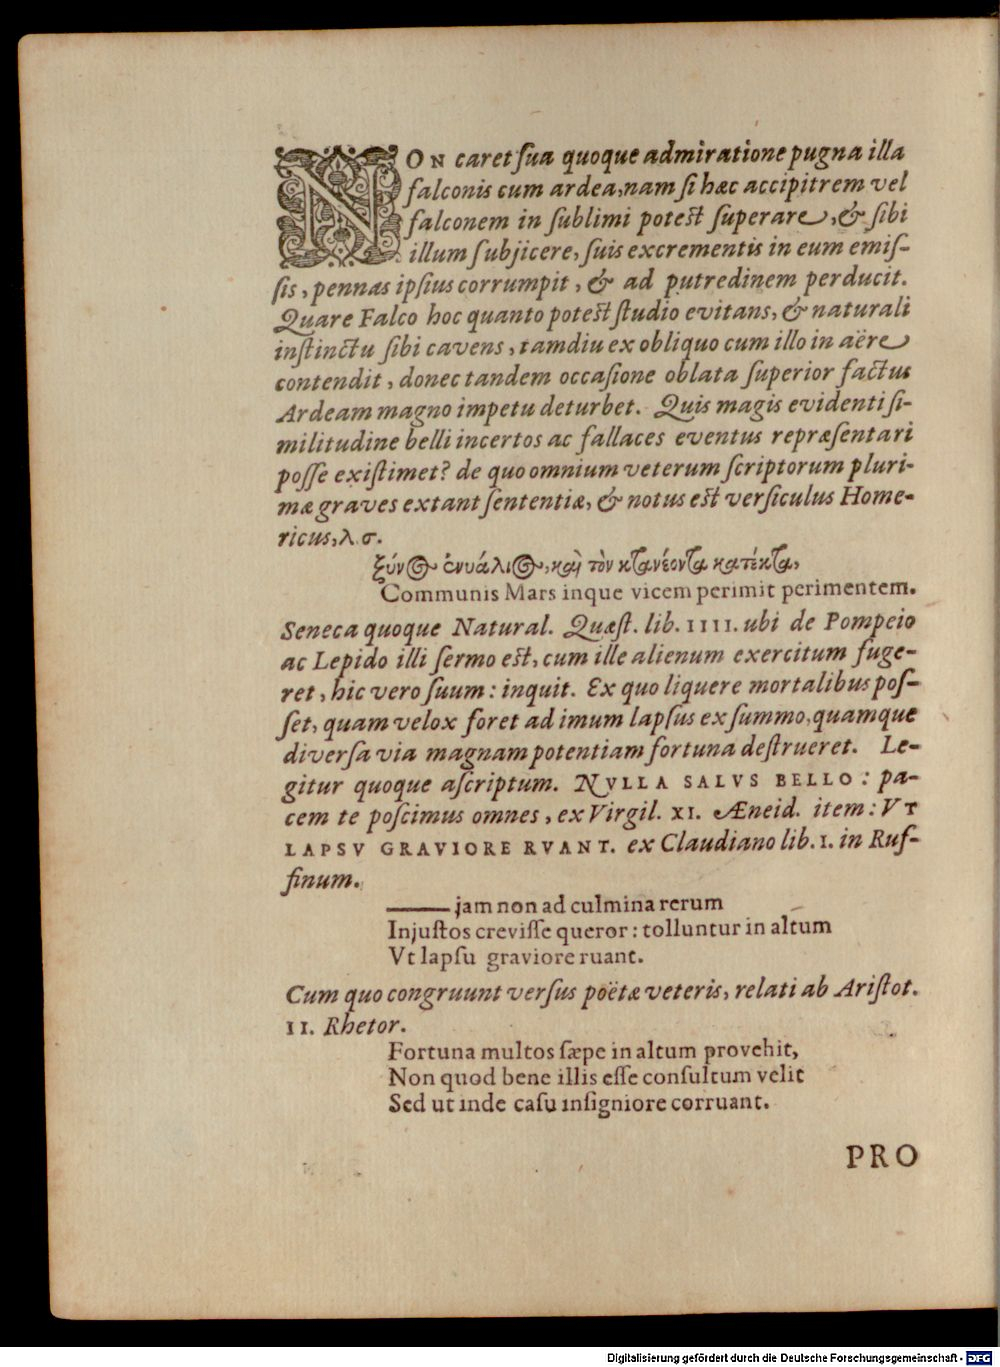 NON caret ſua quoque admiratione pugna illa
falconis cum ardea, nam ſi hæc accipitrem vel
falconem in ſublimi poteſt ſuperare, & ſibi
illum ſubjicere, ſuis excrementis in eum emiſ-
ſis, pennas ipſius corrumpit, & ad putredinem perducit.
Quare Falco hoc quanto poteſt ſtudio evitans, & naturali
inſtinctu ſibi cavens, tamdiu ex obliquo cum illo in aëre
contendit, donec tandem occaſione oblata ſuperior factus
Ardeam magno impetu deturbet. Quis magis evidenti ſi-
militudine belli incertos ac fallaces eventus repræſentari
poſſe exiſtimet? de quo omnium veterum ſcriptorum pluri-
mæ graves extant ſententiæ, & notus eſt verſiculus Home-
ricus, λ. σ.
ξύνος ἐνυάλιος, καὶ τὸν κτανέοντα κατέκτα,
Communis Mars inque vicem perimit perimentem.
Seneca quoque Natural. Quæſt. lib. IIII. ubi de Pompeio
ac Lepido illi ſermo eſt, cum ille alienum exercitum fuge-
ret, hic vero ſuum: inquit. Ex quo liquere mortalibus poſ-
ſet, quam velox foret ad imum lapſus ex ſummo, quamque
diverſa via magnam potentiam fortuna deſtrueret. Le-
gitur quoque aſcriptum. NVLLA SALVS BELLO: pa-
cem te poſcimus omnes, ex Virgil. XI. Æneid. item: VT
LAPSV GRAVIORE RVANT. ex Claudiano lib. I. in Ruf-
finum.
—— jam non ad culmina rerum
Injuſtos creviſſe queror: tolluntur in altum
Vt lapſu graviore ruant.
Cum quo congruunt verſus poëtæ veteris, relati ab Ariſtot.
II. Rhetor.
Fortuna multos ſæpe in altum provehit,
Non quod bene illis eſſe conſultum velit
Sed ut inde caſu inſigniore corruant.
PRO
Digitalisierung gefördert durch die Deutsche Forschungsgemeinschaft - DFG